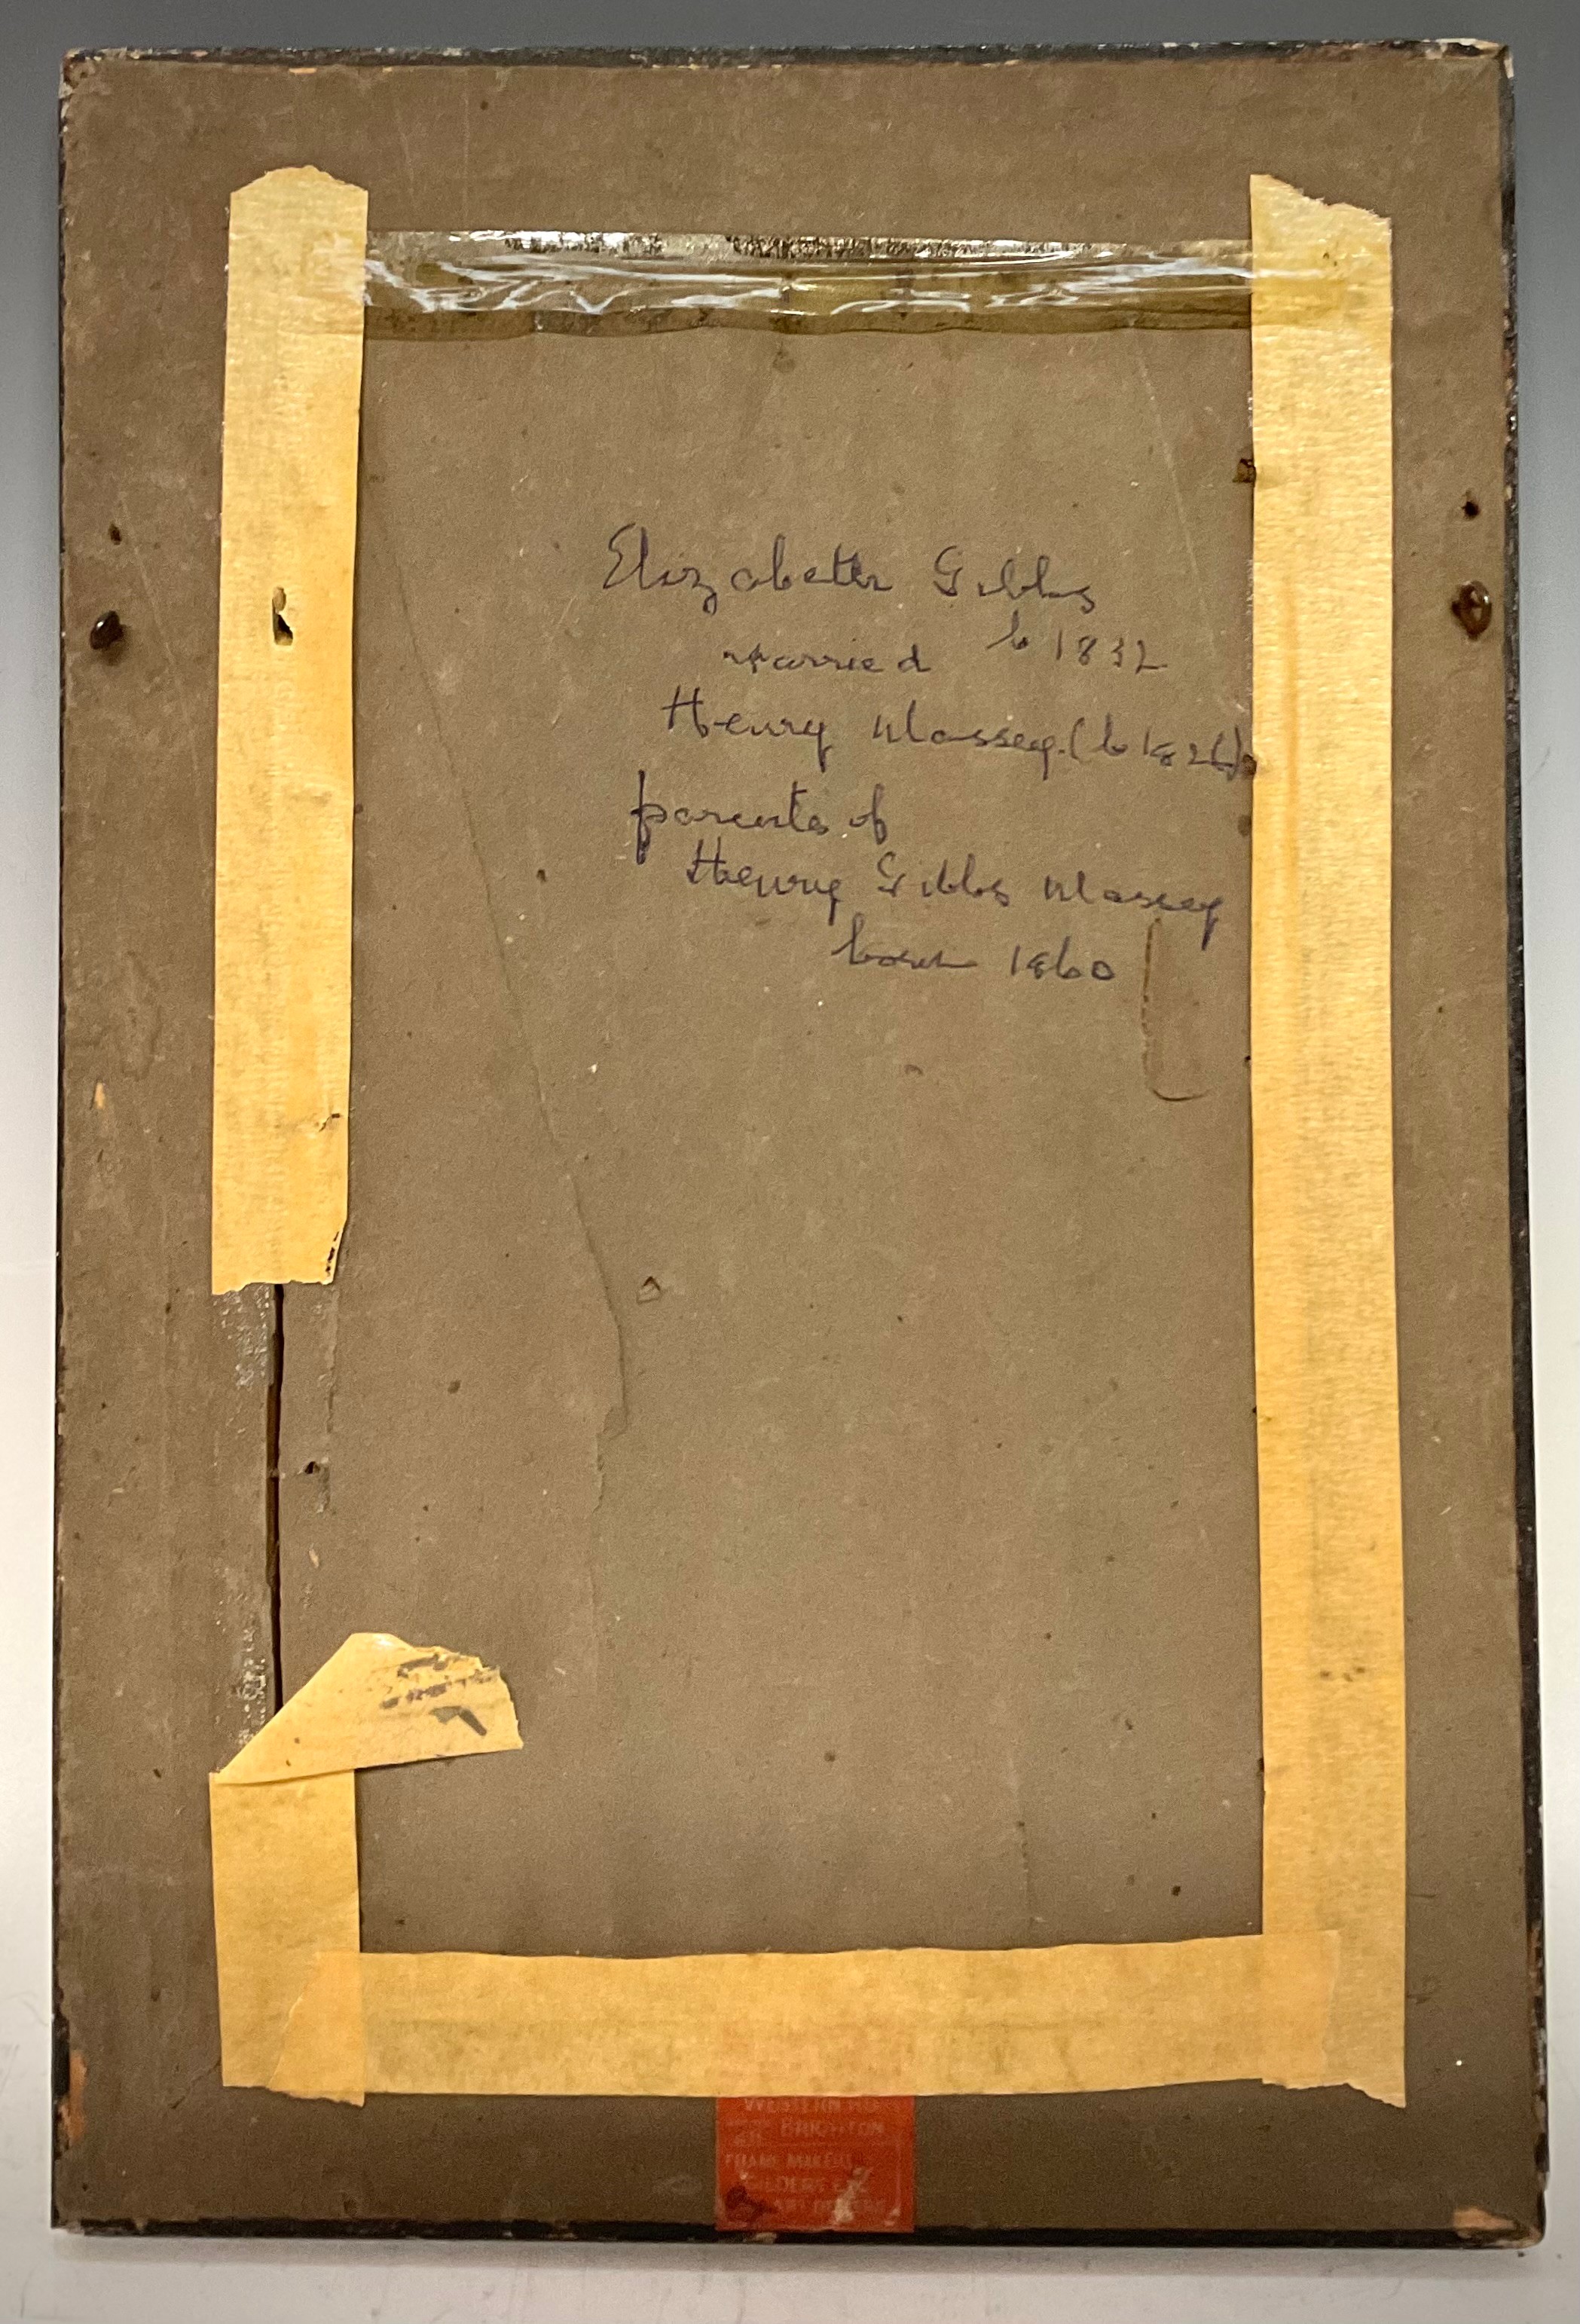 Elizabeth Gibbs
b 1832
married
Henry Massey. (b 1826)
parents of
Henry Gibbs Massey
born 1860
WESTERN RD
BRIGHTON
FRAME MAKERS
GILDERS ETC
ART DEALERS